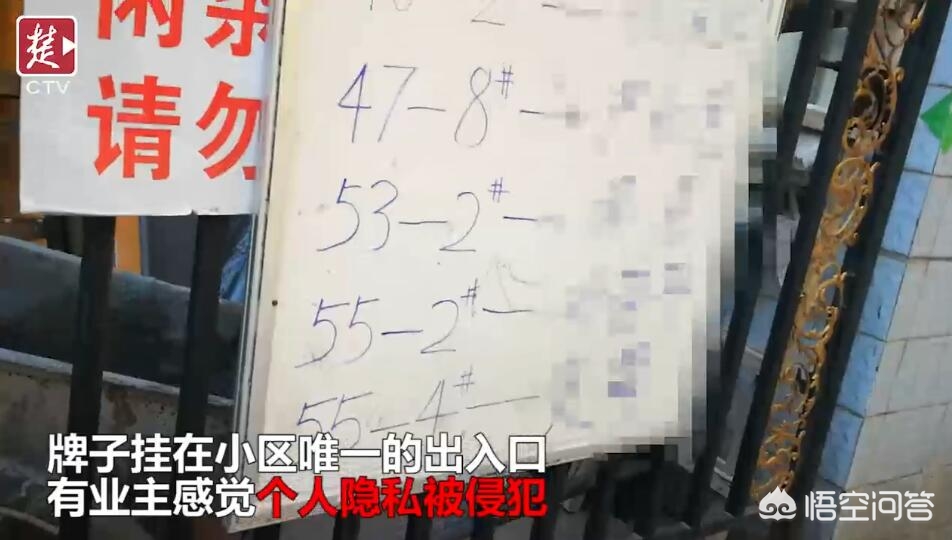 楚
CTV
闲杂
请勿
47-8#-
53-2#-
55-2#-
55-4#-
牌子挂在小区唯一的出入口
有业主感觉个人隐私被侵犯
悟空问答